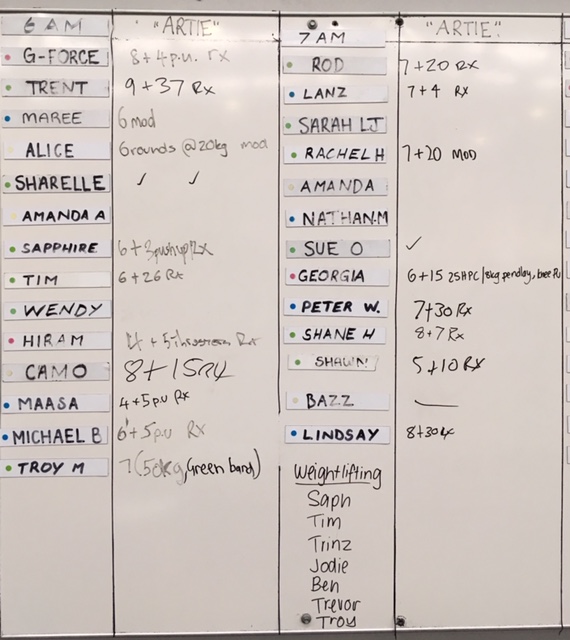 6 AM "ARTIE"
G-FORCE 8+4p.u. rx
TRENT 9+37 Rx
MAREE 6 mod
ALICE 6rounds @20kg mod
SHARELLE ✓ ✓
AMANDA A
SAPPHIRE 6+3pushup Rx
TIM 6+26 Rx
WENDY
HIRAM 4+5 Rx
CAMO 8+15RX
MAASA 4+5p.u Rx
MICHAEL B 6+5p.u Rx
TROY M 7(50kg,Green band)
7 AM "ARTIE"
ROD 7+20 Rx
LANZ 7+4 Rx
SARAH LJ
RACHEL H 7+20 MOD
AMANDA
NATHAN.M
SUE O ✓
GEORGIA 6+15 25HPC/8kg pendlay,
PETER W. 7+30 Rx
SHANE H 8+7 Rx
SHAUN 5+10 RX
BAZZ —
LINDSAY 8+30 Rx
Weightlifting
Saph
Tim
Trinz
Jodie
Ben
Trevor
Troy